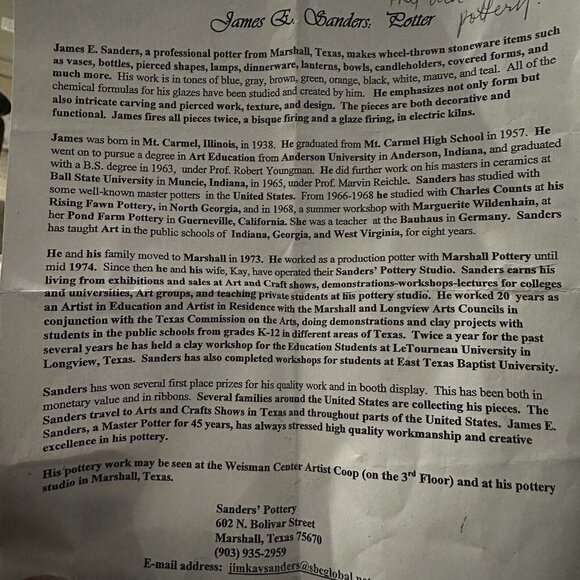 James E. Sanders, Potter
pottery.
James E. Sanders, a professional potter from Marshall, Texas, makes wheel-thrown stoneware items such
as vases, bottles, pierced shapes, lamps, dinnerware, lanterns, bowls, candleholders, covered forms, and
much more. His work is in tones of blue, gray, brown, green, orange, black, white, mauve, and teal. All of the
chemical formulas for his glazes have been studied and created by him. He emphasizes not only form but
also intricate carving and pierced work, texture, and design. The pieces are both decorative and
functional. James fires all pieces twice, a bisque firing and a glaze firing, in electric kilns.
James was born in Mt. Carmel, Illinois, in 1938. He graduated from Mt. Carmel High School in 1957. He
went on to pursue a degree in Art Education from Anderson University in Anderson, Indiana, and graduated
with a B.S. degree in 1963, under Prof. Robert Youngman. He did further work on his masters in ceramics at
Ball State University in Muncie, Indiana, in 1965, under Prof. Marvin Reichle. Sanders has studied with
some well-known master potters in the United States. From 1966-1968 he studied with Charles Counts at his
Rising Fawn Pottery, in North Georgia, and in 1968, a summer workshop with Marguerite Wildenhain, at
her Pond Farm Pottery in Guerneville, California. She was a teacher at the Bauhaus in Germany. Sanders
has taught Art in the public schools of Indiana, Georgia, and West Virginia, for eight years.
He and his family moved to Marshall in 1973. He worked as a production potter with Marshall Pottery until
mid 1974. Since then he and his wife, Kay, have operated their Sanders' Pottery Studio. Sanders earns his
living from exhibitions and sales at Art and Craft shows, demonstrations-workshops-lectures for colleges
and universities, Art groups, and teaching private students at his pottery studio. He worked 20 years as
an Artist in Education and Artist in Residence with the Marshall and Longview Arts Councils in
conjunction with the Texas Commission on the Arts, doing demonstrations and clay projects with
students in the public schools from grades K-12 in different areas of Texas. Twice a year for the past
several years he has held a clay workshop for the Education Students at LeTourneau University in
Longview, Texas. Sanders has also completed workshops for students at East Texas Baptist University.
Sanders has won several first place prizes for his quality work and in booth display. This has been both in
monetary value and in ribbons. Several families around the United States are collecting his pieces. The
Sanders travel to Arts and Crafts Shows in Texas and throughout parts of the United States. James E.
Sanders, a Master Potter for 45 years, has always stressed high quality workmanship and creative
excellence in his pottery.
His pottery work may be seen at the Weisman Center Artist Coop (on the 3rd Floor) and at his pottery
studio in Marshall, Texas.
Sanders' Pottery
602 N. Bolivar Street
Marshall, Texas 75670
(903) 935-2959
E-mail address: jimkaysanders@sbcglobal.net